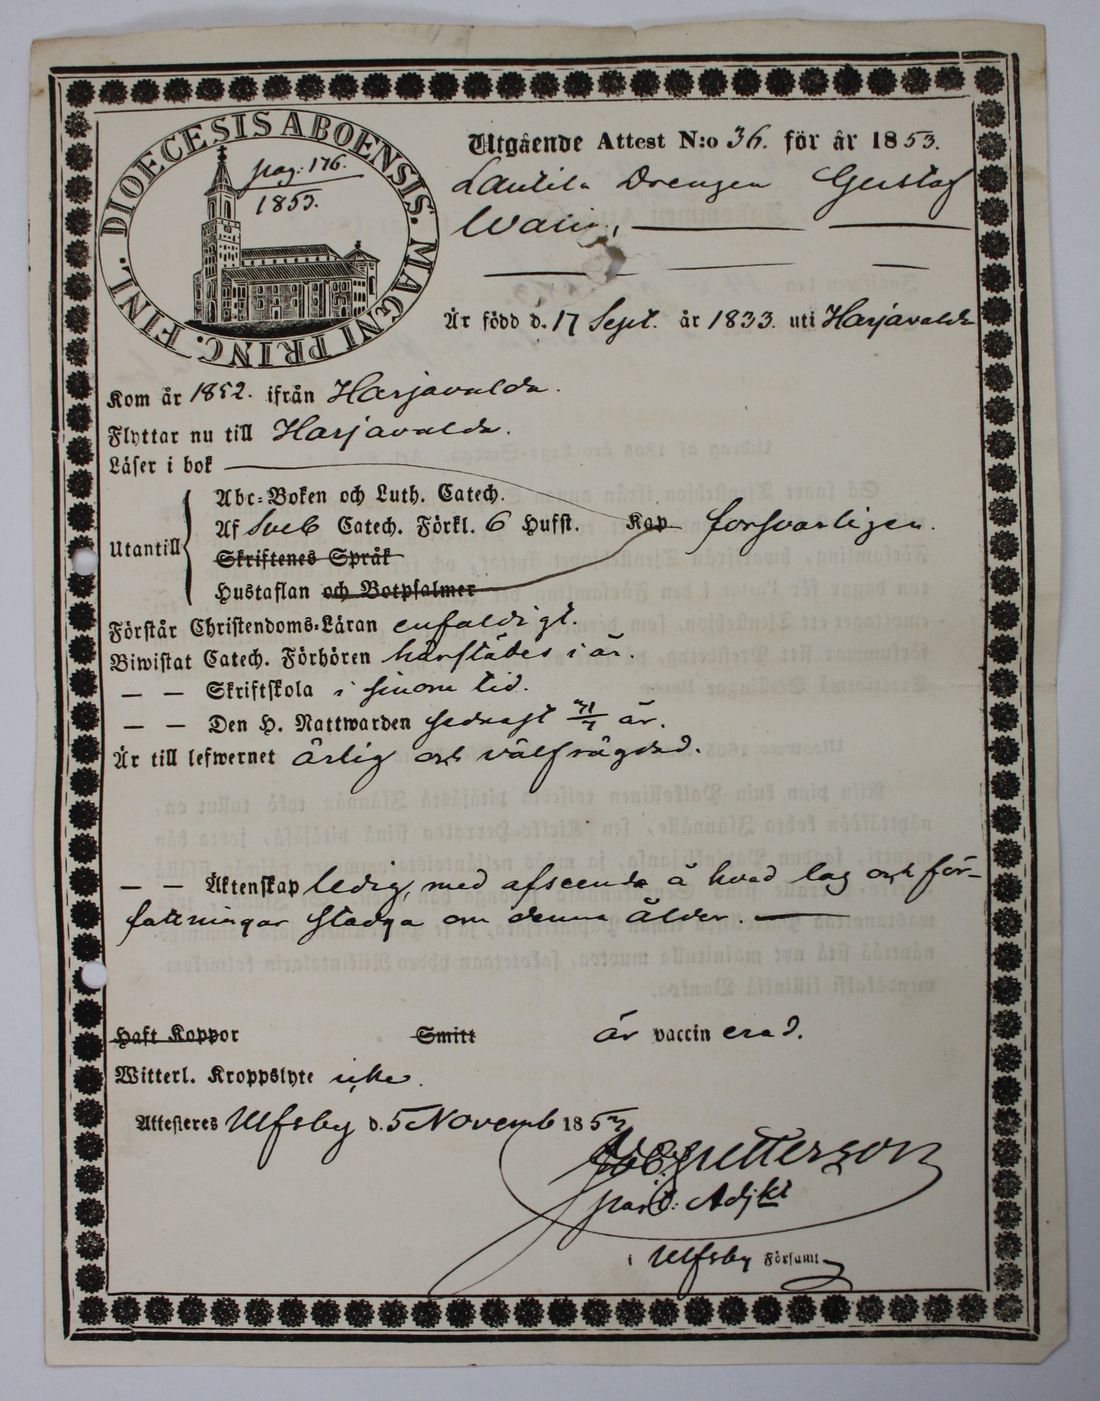 DIOECESIS ABOENSIS. MAGNI PRINC. FINL.
pag. 176.
1853.
Utgående Attest N:o 36. för år 1853.
Lantila Drengen Gustaf
Är född d. 17 Sept. år 1833. uti Harjavalda
Kom år 1852. ifrån Harjavalda.
Flyttar nu till Harjavalda.
Läser i bok
Abc-Boken och Luth. Catech.
Af Sveb Catech. Förkl. 6 Hufst. Kap. försvarligen.
Utantill
Skriftenes Språk
Hustaflan och Botpsalmer
Förstår Christendoms-Läran enfaldigt.
Biwistat Catech. Förhören härstädes i år.
— — Skriftskola i sinom tid.
— — Den H. Nattwarden sednast 31/7 år.
Är till lefwernet ärlig och välfrägdad.
— — Äktenskap ledig, med afseende å hvad lag och för-
fattningar stadga om denna ålder.
Haft Koppor Smitt är vaccin erad.
Witterl. Kroppslyte icke.
Attesteres Ulfsby d. 5 Novemb 1853
Adjkt
i Ulfsby Församl